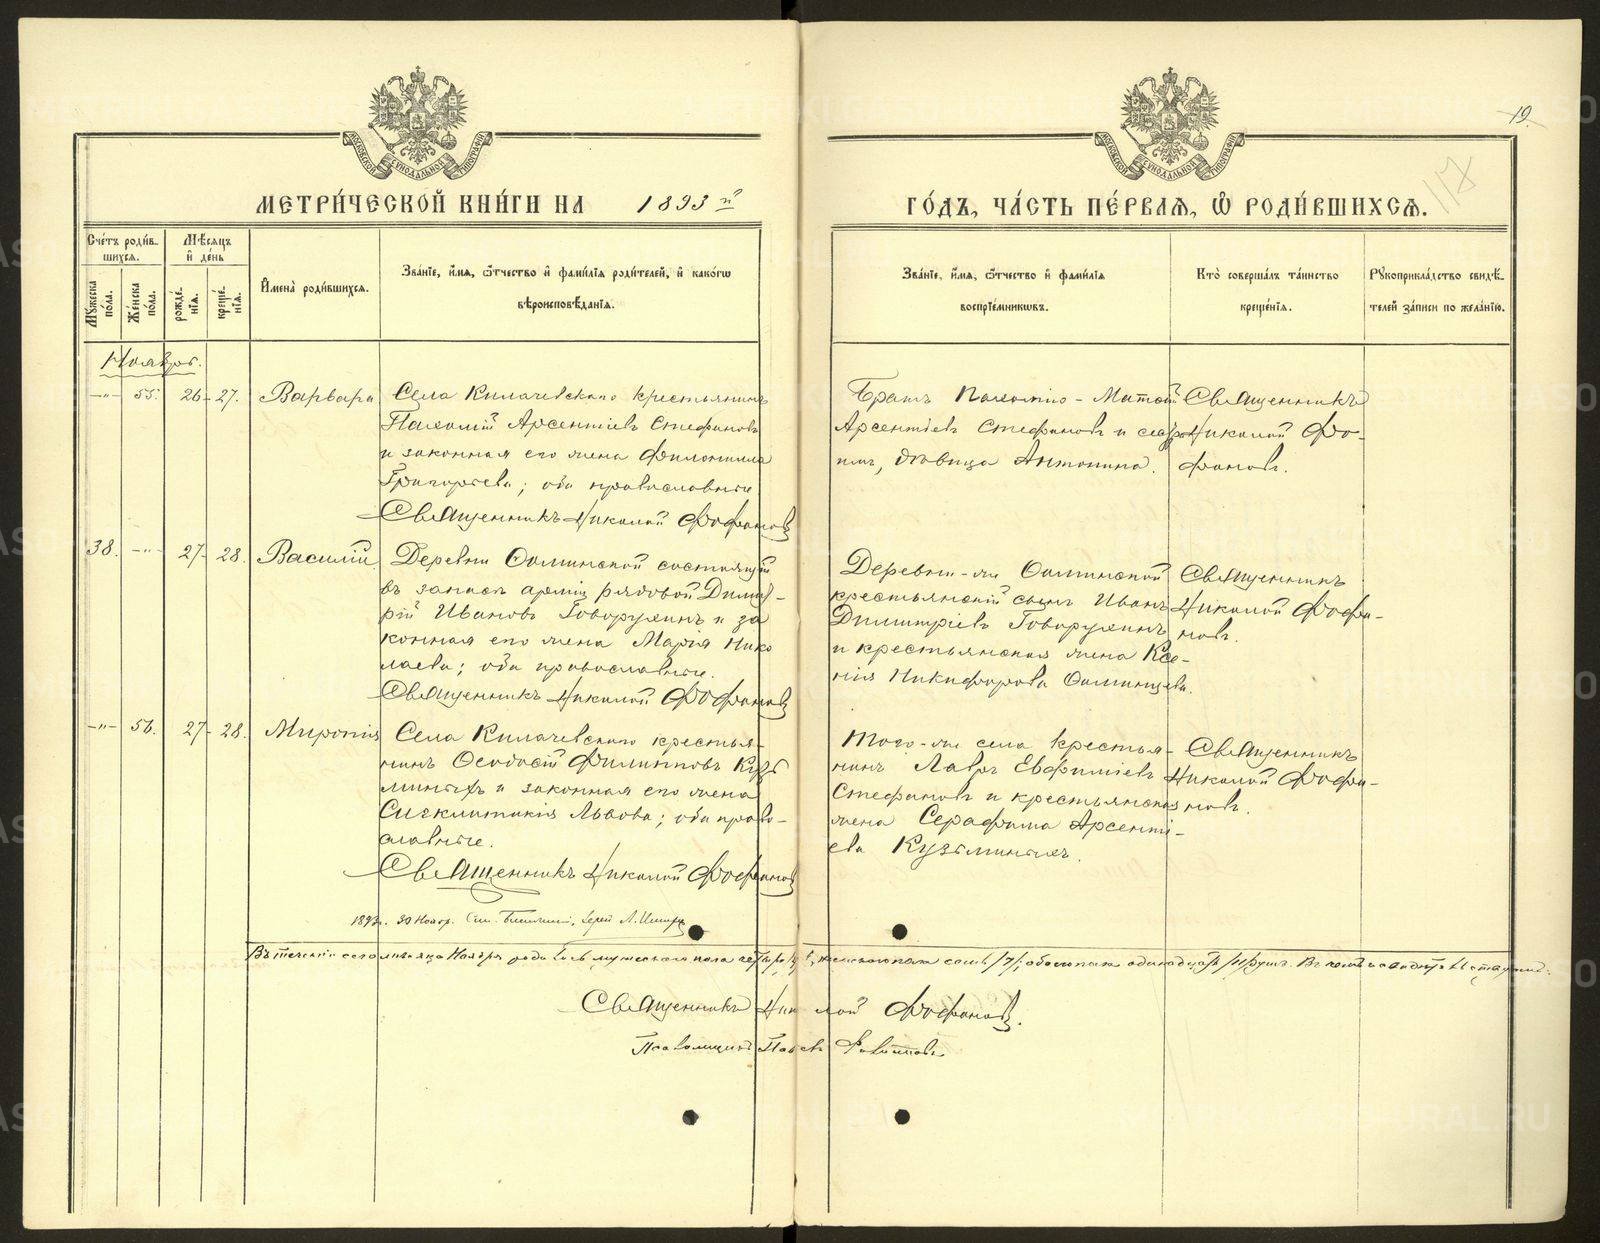 19.
117
МЕТРИ́ЧЕСКОЙ КНИ́ГИ НА 1893 й
ГО́ДЪ, ЧА́СТЬ ПЕ́РВАЯ, Ѽ РОДИ́ВШИХСЯ.
Сче́тъ роди́в-
шихся.
Мѣ́сяцъ
и҆ де́нь
Му́жеска по́ла.
Же́нска по́ла.
рожде́нїя.
креще́нїя.
И҆мена̀ роди́вшихся.
Зва́нїе, и҆́мя, ѻ҆́тчество и҆ фами́лїя роди́телей, и҆ како́гѡ
вѣроисповѣ́данїя.
Зва́нїе, и҆́мя, ѻ҆́тчество и҆ фами́лїя
воспрїе́мниковъ.
Кто̀ соверша́лъ та́инство
креще́нїя.
Рукоприкла́дство свидѣ́-
телей за́писи по жела́нїю.
Ноябрь.
-"- 55. 26- 27. Варвара
Села Килачевскаго крестьянинъ
Пахомій Арсентіевъ Стефановъ
и законная его жена Филонилла
Григорьева; оба православные
Священникъ Николай Фофановъ
Братъ Пахомію - Матѳей
Арсентіевъ Стефановъ и сестра
имъ, дѣвица Антонина.
Священникъ
Николай Фо-
фановъ.
38. -"- 27- 28. Василій
Деревни Ѳоминской состоящій
въ запасѣ арміи рядовой Димит-
рій Ивановъ Говорухинъ и за
конная его жена Марія Нико
лаева; оба православные.
Священникъ Николай Фофановъ
Деревни-же Ѳоминской
крестьянскій сынъ Иванъ
Димитріевъ Говорухинъ
и крестьянская жена Ксе-
нія Никифорова Ѳоминцева.
Священникъ
Николай Фофа-
новъ.
-"- 56. 27- 28. Миропія
Села Килачевскаго крестья-
нинъ Ѳеодосій Филипповъ Кузь
миныхъ и законная его жена
Сигклитикія Львова; оба право-
славные.
Священникъ Николай Фофановъ
Того-же села крестья-
нинъ Лавръ Евфиміевъ
Стефановъ и крестьянская
жена Серафима Арсенті-
ева Кузьминыхъ.
Священникъ
Николай Фофа-
новъ.
1893г. 30 Нояб.
Въ теченіи сего мѣсяца Ноября родилось мужескаго пола четыре /4/, женскаго пола семь /7/, обоего пола одиннадцать /11/ душъ. Въ чемъ и свидѣтельствуемъ:
Священникъ Николай Фофановъ.
Псаломщикъ Павелъ